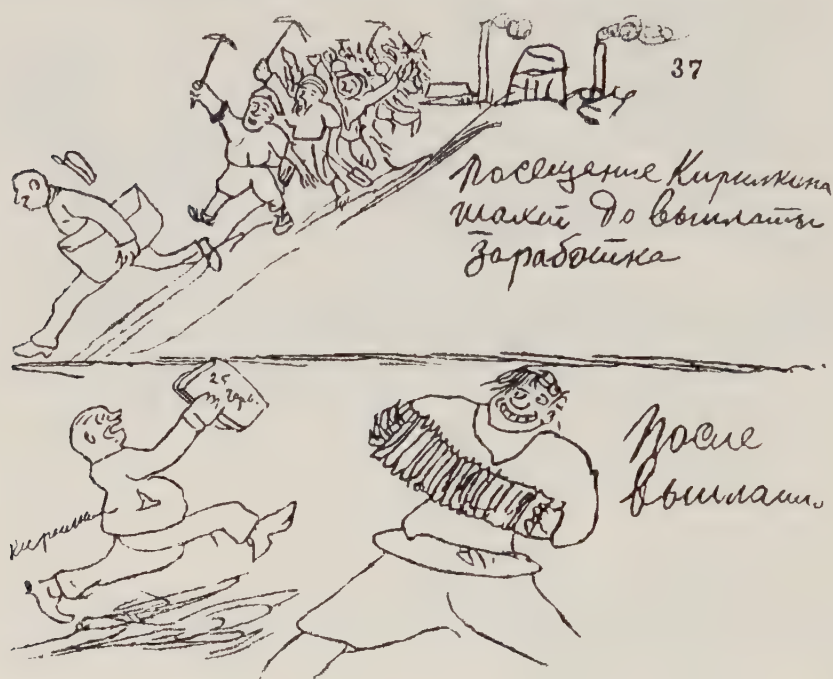 37
Посещение Кирилкина
шахт до выплаты
заработка
25
т. черв.
Кирилкин
После
выплаты.